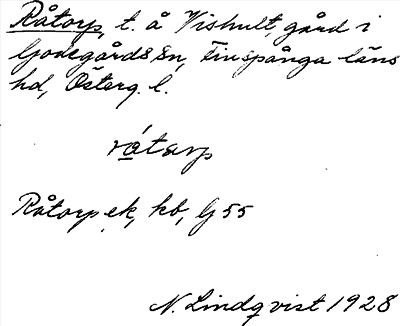 Råtorp, t. å Vishult, gård i
Godegårds sn, Finspånga läns
hd, Österg. l.
råtarp
Råtorp ek, kb, G 55
N. Lindqvist 1928